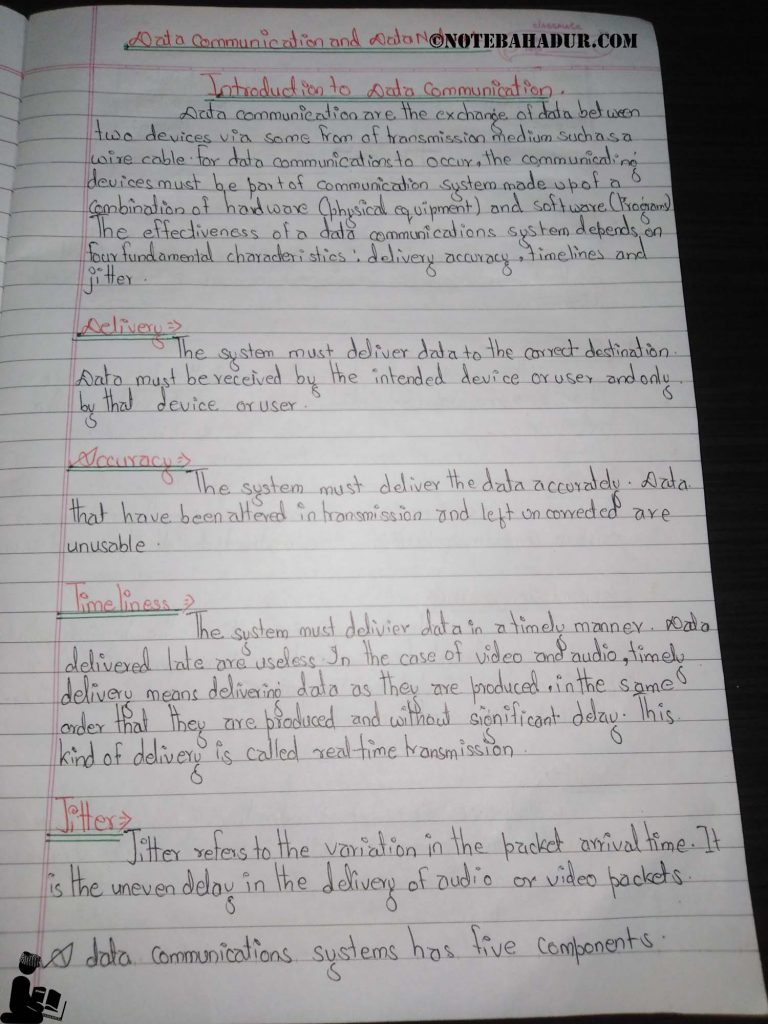 classmate
Data Communication and Data N ©NOTEBAHADUR.COM
Introduction to Data Communication.
Data communication are the exchange of data between
two devices via some from of transmission medium such as a
wire cable. for data communications to occur, the communicating
devices must be part of communication system made up of a
Combination of hardware (physical equipment) and software (Program)
The effectiveness of a data communications system depends on
four fundamental characteristics: delivery accuracy, timelines and
jitter.
Delivery⇒
The system must deliver data to the correct destination.
Data must be received by the intended device or user and only
by that device or user.
Accuracy⇒
The system must deliver the data accurately. Data
that have been altered in transmission and left uncorrected are
unusable.
Timeliness ⇒
The system must delivier data in a timely manner. Data
delivered late are useless. In the case of video and audio, timely
delivery means delivering data as they are produced, in the same
order that they are produced and without significant delay. This
kind of delivery is called real-time transmission.
Jitter⇒
Jitter refers to the variation in the packet arrival time. It
is the uneven delay in the delivery of audio or video packets.
A data communications systems has five components.